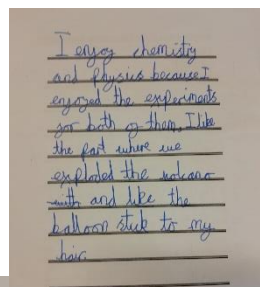 I enjoy chemistry
and Physics because I
enjoyed the experiments
for both of them, I like
the part where we
exploded the volcano
and like the
balloon stuck to my
hair.